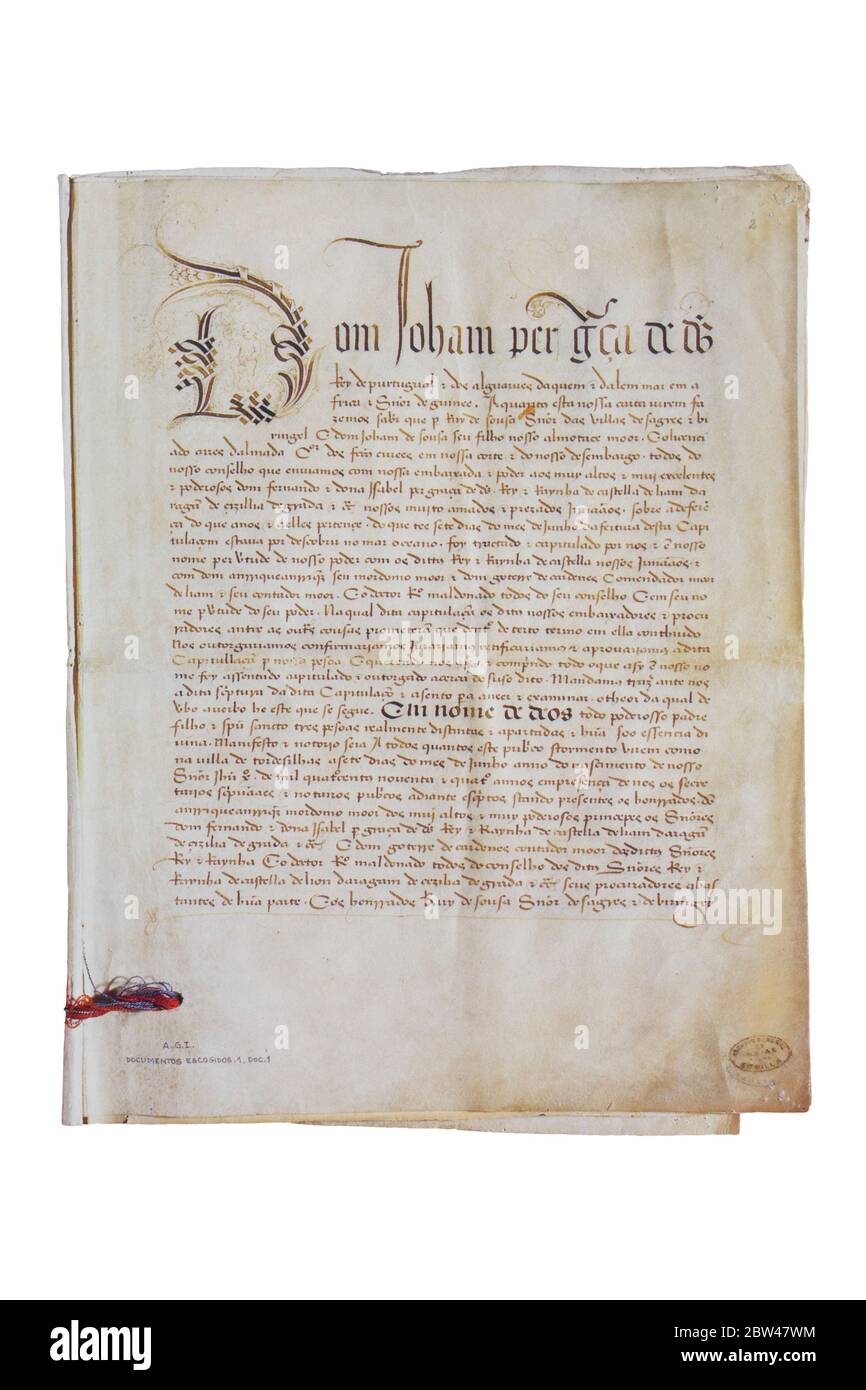 2
Dom Joham per gça de ds
Rey de purtugual & dos alguarues daquem & dalem mar em a
frica & Sñor de guinee. A quantos esta nossa carta virem fa
zemos saber que p Ruy de sousa Sñor das villas de sagres & bi
ringel E dom Joham de sousa seu filho nosso almotace moor. E o lecenci
ado ayres dalmada em nossa corte & do nosso desembargo. todos do
nosso conselho que enviamos com nossa embaixada & poder aos muy altos & mui excelentes
& poderosos dom fernando & dona Isabel per graça de ds. Rey & Raynha de castella de liam da
ragam de cizilia de grada & nossos muito amados & prezados Irmaãos. sobre a deferē
ça do que a nos & a elles pertençe. do que tee sete dias do mes de Junho da feitura desta Capi
tulaçom estava por descobrir no mar oceano. foy tractado & capitulado por nos & ē nosso
nome per vtude de nosso poder com os dittos Rey & Raynha de castella nossos Irmãaos. &
com dom seu mordomo moor & dom goterre de cardenes Comendador moor
de liam & seu contador moor. E o doctor Ro maldonado todos do seu conselho E em seu no
me p vtude do seu poder. Na qual dita capitulaçã os ditos nossos embaixadores & procu
radores antre as outras cousas prometerã que dentro de certo termo em ella conthiudo
Nos outorgariamos confirmariamos Jurariamos ratificariamos & aprovariamos a dita
Capitullaçã p nossa pesoa E & comprindo todo o que asy ē nosso no
me foy assentado capitulado & outorgado acerca do suso dito. Mandamos trazer ante nos
a dita scptura da dita Capitulaçã & asento pa a veer & examinar. o theor da qual de
vbo a verbo he este que se segue. Em nome de deos todo poderosso padre
filho & spũ sancto tres pesoas realmente distintas & apartadas & hũa soo essencia di
uina. Manifesto & notorio seia A todos quantos este pubco stormento virem como
na villa de tordesilhas a sete dias do mes de Junho anno do nascimento de nosso
Sñor Jhũ x. de mil quatrcento noventa & quatro annos em presença de nos os secre
tarios scpuaaes & notarios pubcos adiante scptos stando presentes os honrrados. dõ
mordomo moor dos mui altos & muy poderosos principes os Sñores
dom fernando & dona Isabel p graça de ds Rey & Raynha de castella de liam daragã
de çizilia de grada & E dom goterre de cardenes contador moor dos dittos Sñores
Rey & Raynha E o doctor Ro maldonado todos do conselho dos dittos Sñores Rey &
Raynha de castella de lion daragam de cezilia de grada & seus procuradores abas
tantes de hũa parte. E os honrrados Ruy de sousa Sñor de sagres & de biringel
A.G.I.
DOCUMENTOS ESCOGIDOS.1, DOC.1
SEVILLA
alamy
a
alamy
Image ID: 2BW47WM
www.alamy.com